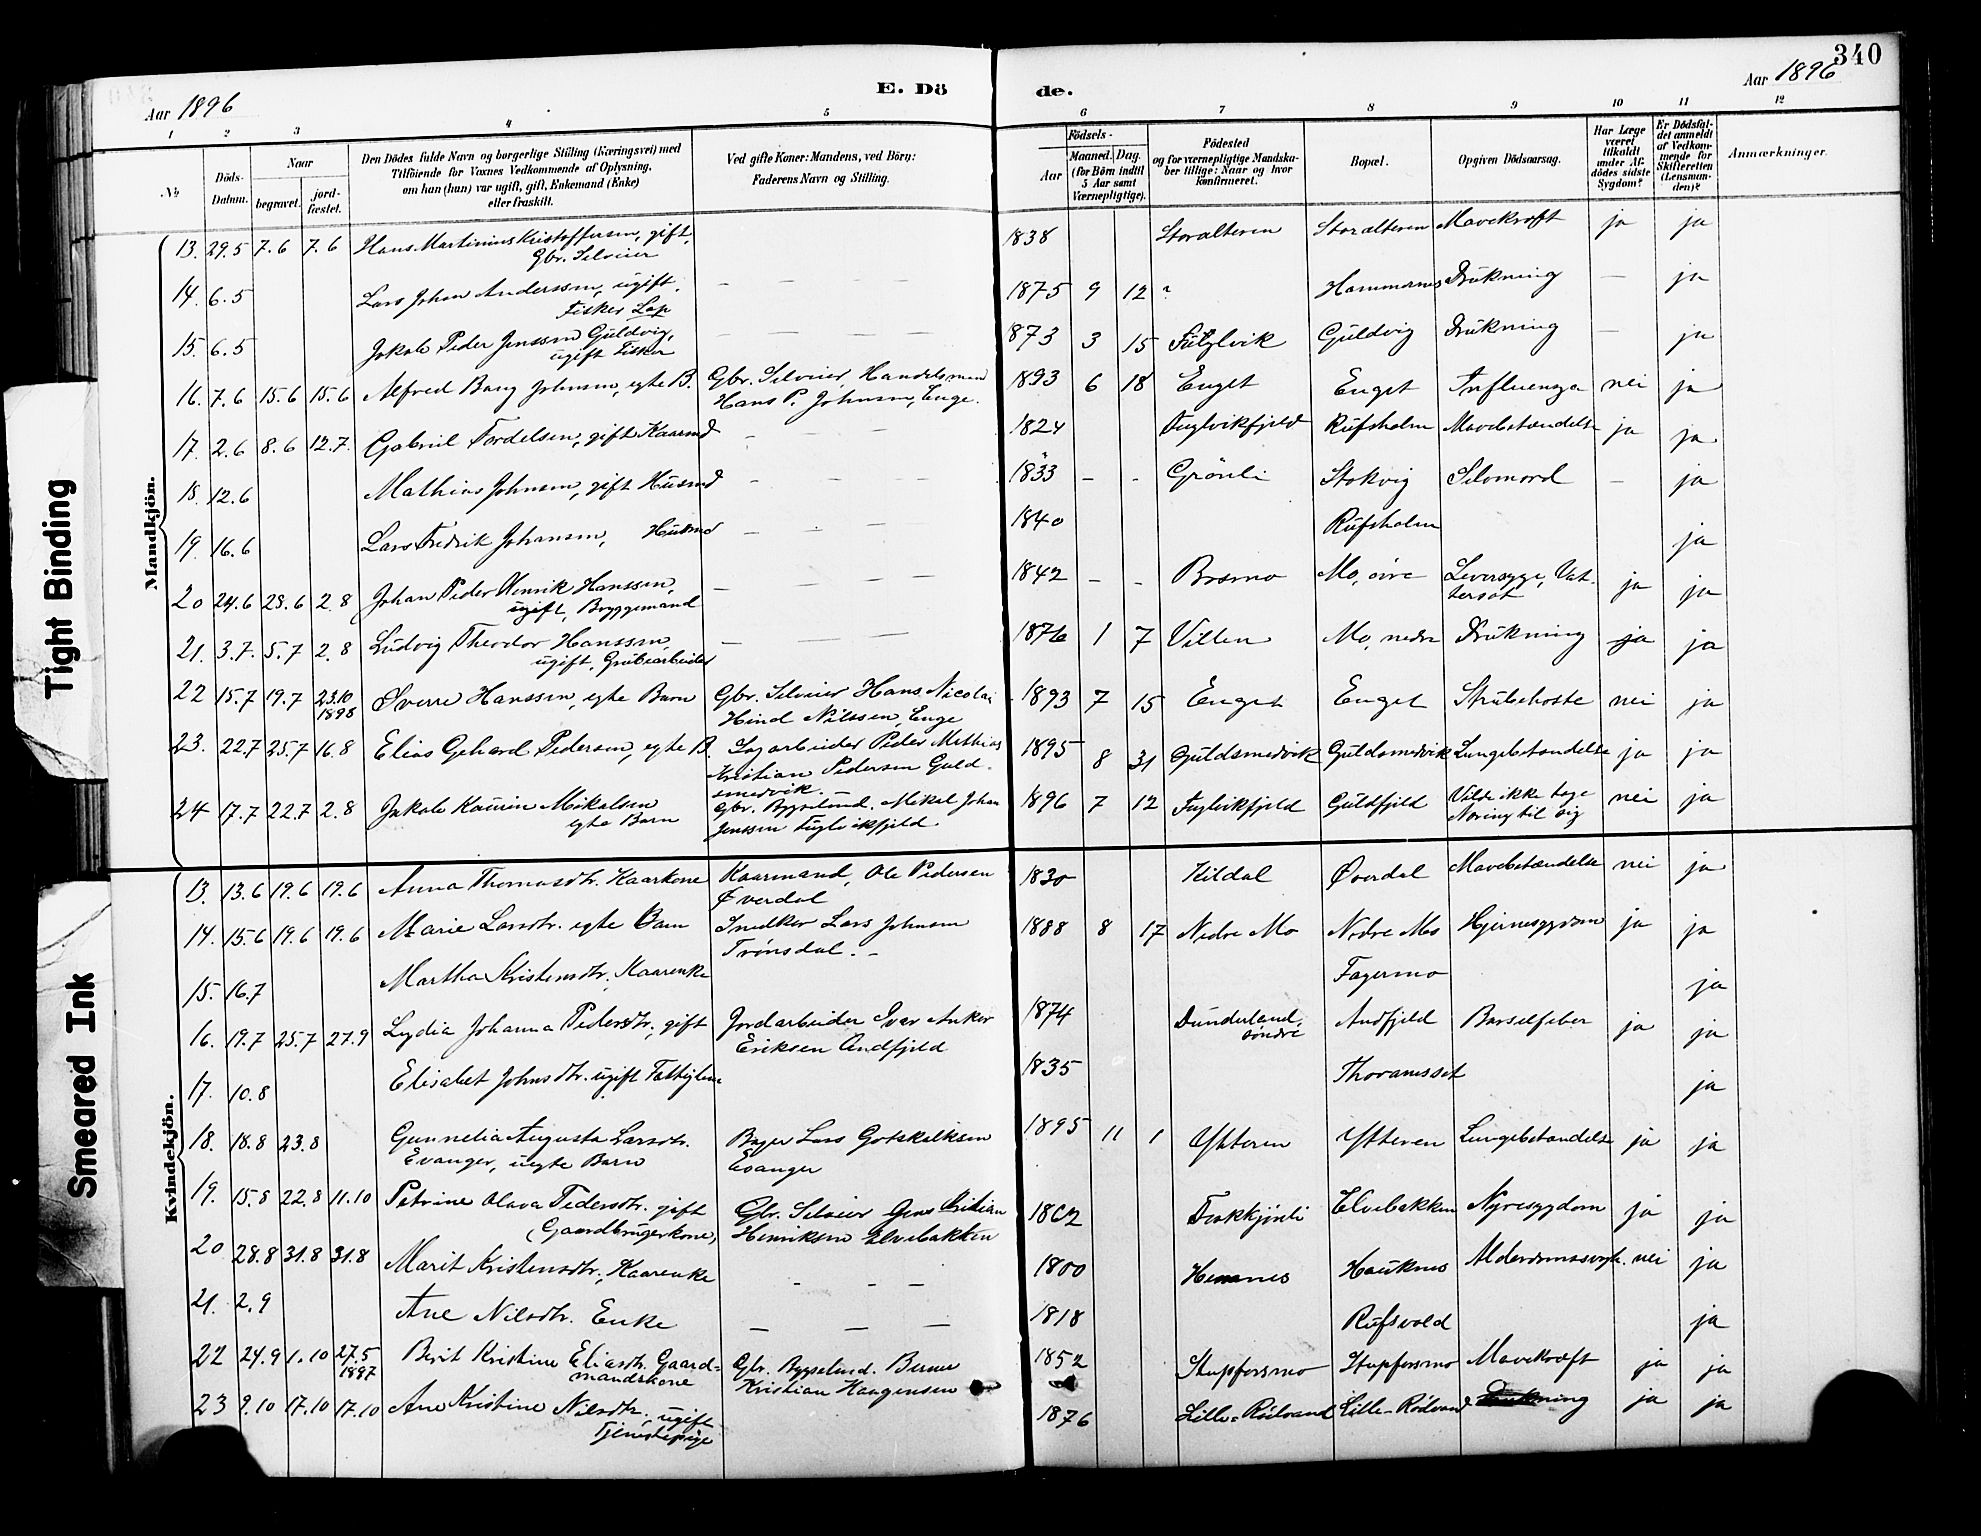 340
Aar 1896
E. Dö
de.
Aar 1896
1 2 3 4 5 6 7 8 9 10 11 12
No
Döds-Datum.
Naar
begravet.
jord-fæstet.
Den Dödes fulde Navn og borgerlige Stilling (Næringsvei) med
Tilföiende for Voxnes Vedkommende af Oplysning,
om han (hun) var ugift, gift, Enkemand (Enke)
eller fraskilt.
Ved gifte Koner: Mandens, ved Börn:
Faderens Navn og Stilling.
Födsels-
Aar
Maaned. Dag.
(for Börn indtil
5 Aar samt
Værnepligtige).
Födested
og for værnepligtige Mandska-
ber tillige: Naar og hvor
konfirmeret.
Bopæl.
Opgiven Dödsaarsag.
Har Læge
været
tilkaldt
under Af-
dödes sidste
Sygdom?
Er Dödsfal-
det anmeldt
af Vedkom-
mende for
Skifteretten
(Lensman-
den)?
Anmærkninger.
Mandkjön.
13. 29.5 7.6 7.6 Hans Martinius Kristoffersen, gift, 1838 Storalteren Storalteren Mavekræft ja ja
Gbr. Selveier
14. 6.5 Lars Johan Anderssen, ugift, — — — 1875 9 12 ? Hammernes Drukning — ja
Fisker Lap
15. 6.5 Jakob Peder Jenssen Guldvig, — — — 1873 3 15 Fuglvik Guldvig Drukning — ja
ugift Fisker
16. 7.6 15.6 15.6 Alfred Bang Johnsen, egte B. Gbr. Selveier, Handelsmand 1893 6 18 Enget Enget Influenza nei ja
Hans P. Johnsen, Enge.
17. 2.6 8.6 12.7 Gabriel Tordelsen, gift Kaarmd - — 1824 Fuglvikfjeld Rufsholm Mavebetændelse ja ja
18. 12.6 Mathias Johnsen, gift Husmd - — — 1833 - - Grönli Stokvig Selvmord — ja
19. 16.6 Lars Fredrik Johansen, Husmd — — — 1840 Rufsholm ja
20 24.6 28.6 2.8 Johan Peder Henrik Hanssen, — — — — 1842 - - Bosmo Mo, övre Leversyge, Vat- ja ja
ugift, Bryggemand tersot
21. 3.7. 5.7 2.8 Ludvig Theodor Hanssen, — — — 1876 1 7 Villen Mo, nedre Drukning ja ja
ugift, Grubearbeider
22 15.7 19.7 23.10 Sverre Hanssen, egte Barn Gbr. Selveier Hans Nicolai 1893 7 15 Enget Enget Strubehoste nei ja
1898 Hind Nilssen, Enge
23. 22.7 25.7 16.8 Elias Gehard Pedersen, egte B. Sagarbeider Peder Mathias 1895 8 31 Guldsmedvik Guldsmedvik Lungebetændelse ja ja
Kristian Pedersen Guld-
smedvik.
24 17.7 22.7 2.8 Jakob Kaurin Mikalsen Gbr. Bygselmd. Mikal Johan 1896 7 12 Fuglvikfjeld Guldfjeld Vilde ikke tage nei ja
egte Barn Jenssen Fuglvikfjeld. Næring til sig
Kvindekjön.
13. 13.6 19.6 19.6 Anna Thomasdtr. Kaarkone Kaarmand, Ole Pedersen 1830 Kildal Øverdal Mavebetændelse nei ja
Øverdal
14. 15.6 19.6 19.6 Marie Larsdtr. egte Barn Snedker Lars Johnsen 1888 8 17 Nedre Mo Nedre Mo Hjernesygdom ja ja
Trönsdal. -
15. 16.7 Martha Kristensdtr, Kaarenke Fagermo ja
16. 19.7 25.7 27.9 Lydia Johanna Pedersdtr, gift Jordarbeider Ivar Anker 1874 Dunderland, Andfjeld Barselfeber ja ja
Eriksen Andfjeld söndre
17. 10.8 Elisabet Johnsdtr. ugift Fattiglem 1835 Thoranesset ja
18. 18.8 23.8 Gunnelia Augusta Larsdtr. Bager Lars Gotskalksen 1895 11 1 Ytteren Ytteren Lungebetændelse ja ja
Evanger, uegte Barn Evanger
19. 15.8 22.8 11.10 Petrine Olava Pedersdtr. gift Gbr. Selveier Jens Kristian 1862 Elvebakken Nyresygdom ja ja
(Gaardbrugerkone) Henriksen Elvebakken
20 28.8 31.8 31.8 Marit Kristensdtr, Kaarenke - - — 1800 Hemnes Hauknes Alderdomssvagh. nei ja
21. 2.9 Ane Nilsdtr. Enke — — — 1818 Rufsvold ja
22 24.9 1.10 27.5 Berit Kristine Eliasdtr. Gaard- Gbr. Bygselmd. Bernt 1852 Stupforsmo Stupforsmo Mavekræft ja ja
1897 mandskone Kristian Haagensen
23 9.10 17.10 17.10 Ane Kristine Nilsdtr, ugift 1876 Lille-Rödvand Lille-Rödvand Drukning ja ja
Tjenestepige
Tight Binding
Smeared Ink